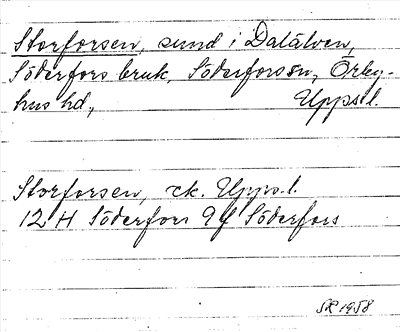 Storforsen, sund i Dalälven,
Söderfors bruk, Söderfors sn, Örby-
hus hd, Upps. l.
Storforsen, ek. Upps. l.
12 H Söderfors 9 f Söderfors
SR 1958